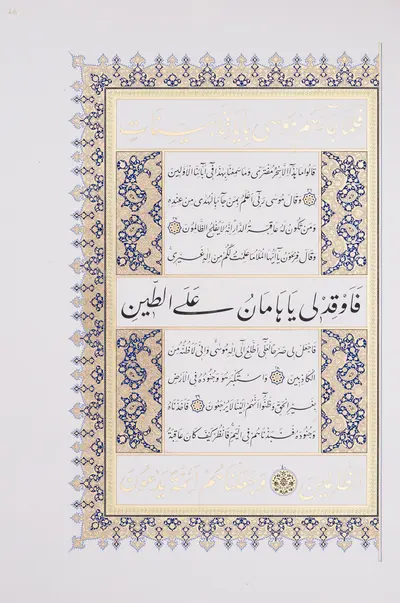 فلما جاءهم موسى بآياتنا بينات
قالوا ما هذا إلا سحر مفترى وما سمعنا بهذا في آبائنا الأولين
وقال موسى ربي أعلم بمن جاء بالهدى من عنده
ومن تكون له عاقبة الدار إنه لا يفلح الظالمون
وقال فرعون يا أيها الملأ ما علمت لكم من إله غيري
فأوقد لي يا هامان على الطين
فاجعل لي صرحا لعلي أطلع إلى إله موسى وإني لأظنه من
الكاذبين واستكبر هو وجنوده في الأرض
بغير الحق وظنوا أنهم إلينا لا يرجعون فأخذناه
وجنوده فنبذناهم في اليم فانظر كيف كان عاقبة
الظالمين وجعلناهم أئمة يدعون